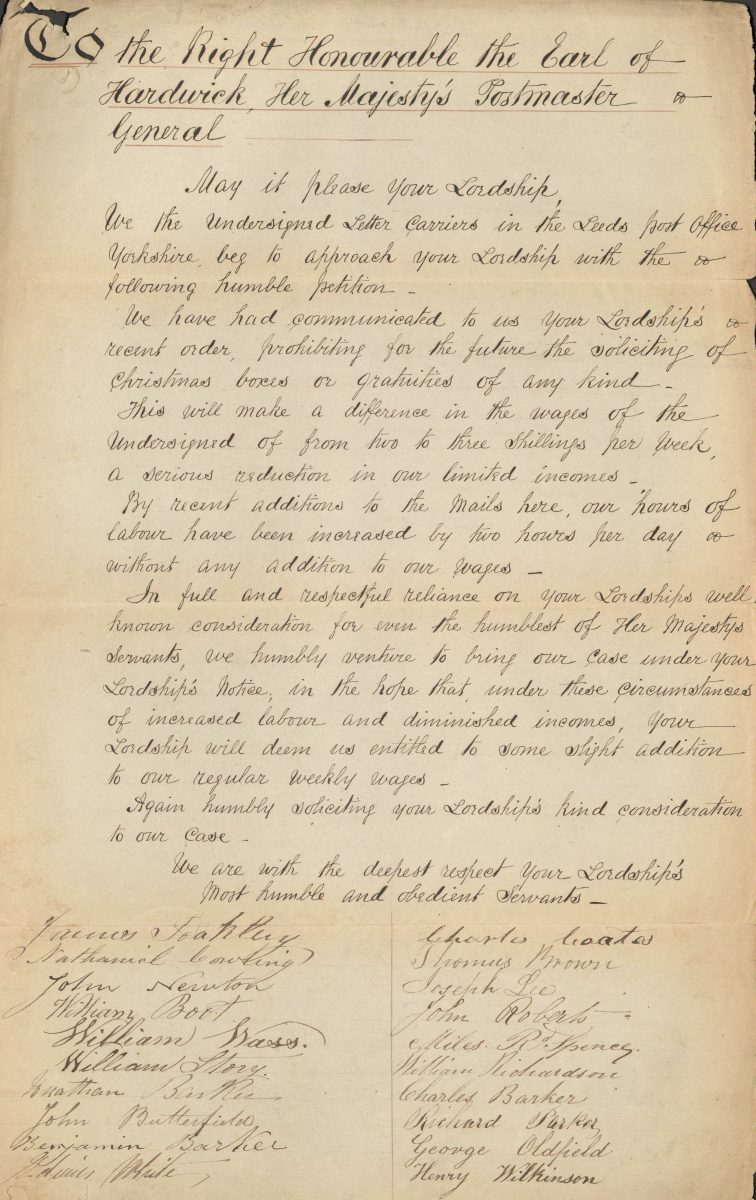 To the Right Honourable the Earl of
Hardwick, Her Majesty's Postmaster
General
May it please Your Lordship,
We the Undersigned Letter Carriers in the Leeds post Office
Yorkshire, beg to approach your Lordship with the
following humble petition _
We have had communicated to us Your Lordship's
recent order, prohibiting for the future the soliciting of
Christmas boxes or gratuities of any kind _
This will make a difference in the wages of the
Undersigned of from two to three Shillings per Week,
a serious reduction in our limited incomes _
By recent additions to the Mails here, our hours of
labour have been increased by two hours per day
without any addition to our wages _
In full and respectful reliance on Your Lordships well
known consideration for even the humblest of Her Majestys
Servants, we humbly venture to bring our Case under Your
Lordship's Notice, in the hope that, under these circumstances
of increased labour and diminished incomes, Your
Lordship will deem us entitled to some slight addition
to our regular weekly wages _
Again humbly soliciting your Lordship's kind consideration
to our Case _
We are with the deepest respect Your Lordship's
Most humble and obedient Servants _
James
Nathanial Cowling
John Newton
William Boot
William Wass.
William Story.
Jonathan
John Butterfield
Benjamin Barker
White
Charles Coates
Thomas Brown
Joseph Lee
John Roberts
Miles Rd. Spence.
William Richardson
Charles Barker
Richard Parker
George Oldfield
Henry Wilkinson